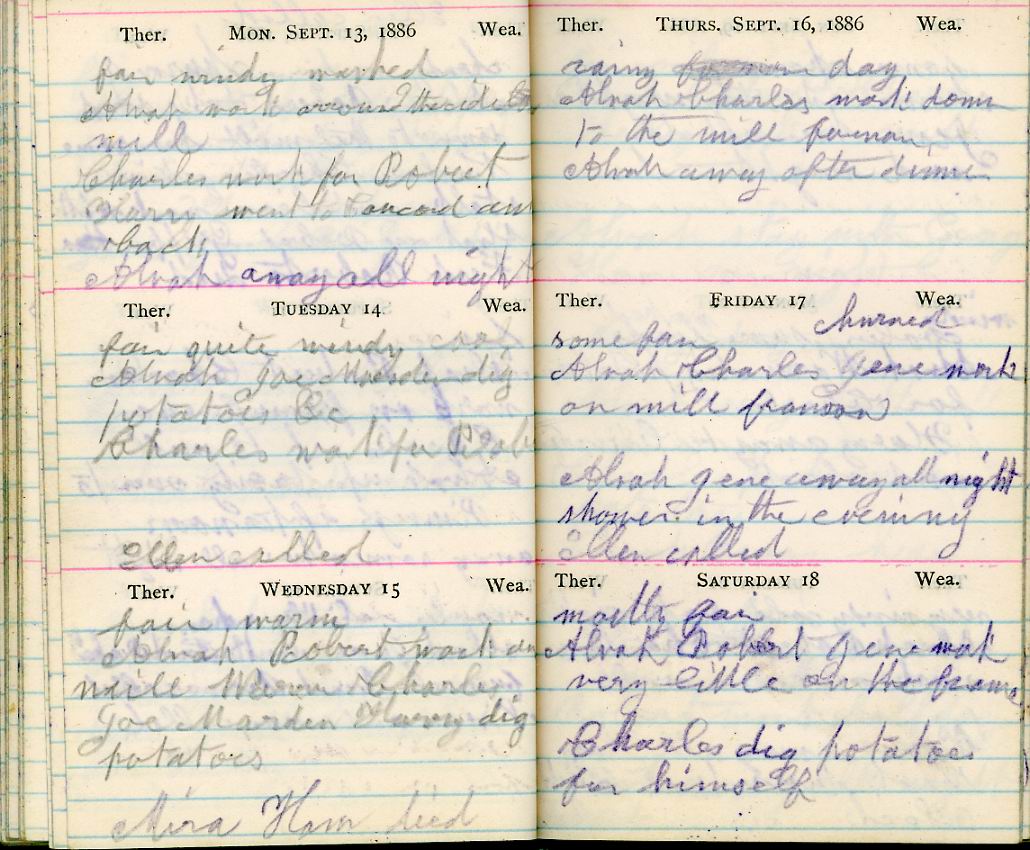 Ther. MON. SEPT. 13, 1886 Wea.
fair windy washed
Alvah work around the cider
mill
Charles work for Robert
Harry went to Concord an
back
Alvah away all night
Ther. TUESDAY 14 Wea.
fair quite windy cool
Alvah Joe Marden dig
potatoes &c
Charles work for Rob
Ellen called
Ther. WEDNESDAY 15 Wea.
fair warm
Alvah Robert work on
mill Charles
Joe Marden Harry dig
potatoes
Mira Ham died
Ther. THURS. SEPT. 16, 1886 Wea.
rainy day
Alvah Charles work down
to the mill forenoon
Alvah away after dinner
Ther. FRIDAY 17 Wea.
churned
some fair
Alvah Charles Gene work
on mill frenoon
Alvah Gene away all night
shower in the evening
Ellen called
Ther. SATURDAY 18 Wea.
mostly fair
Alvah Robert Gene work
very little on the frame
Charles dig potatoes
for himself